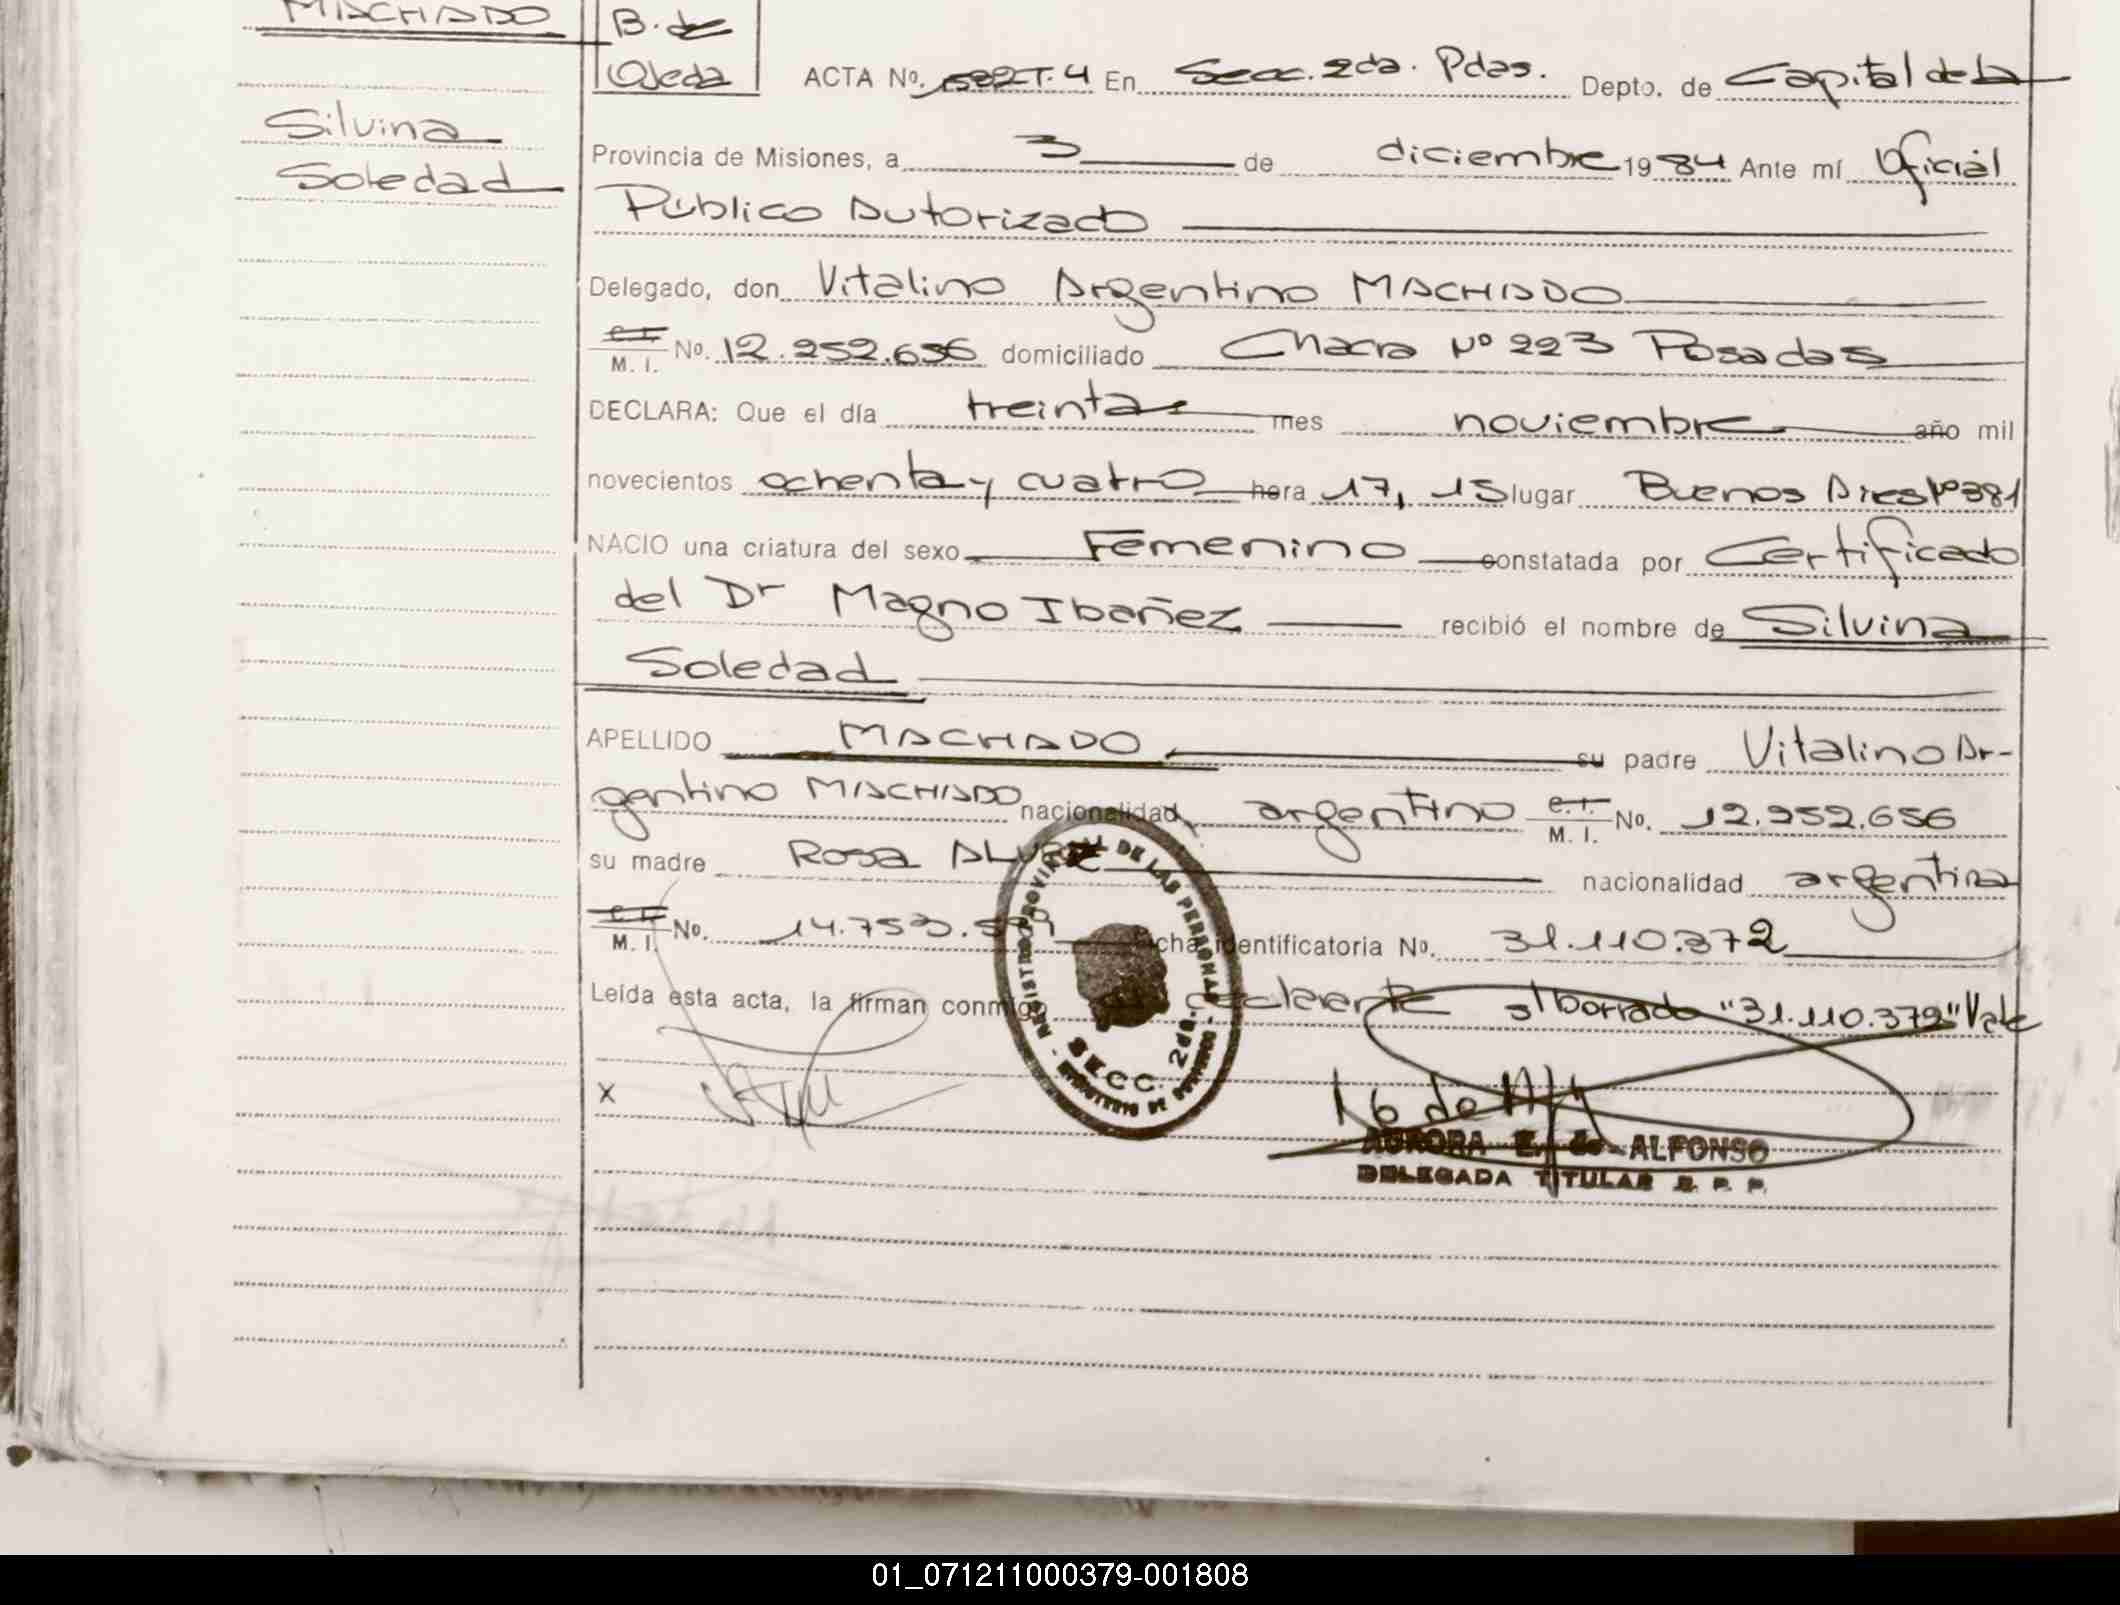 MACHADO
B. de
Ojeda
Silvina
Soledad
ACTA Nº. T. 4 En Secc. 2da. Pdas. Depto. de Capital de la
Provincia de Misiones, a 3 de diciembre 1984 Ante mí Oficial
Público Autorizado
Delegado, don Vitalino Argentino MACHADO
C.I. M. I. No. 12.252.656 domiciliado Chacra Nº 223 Posadas
DECLARA: Que el día treinta mes noviembre año mil
novecientos ochenta y cuatro hora 17,15 lugar Buenos Aires Nº 381
NACIO una criatura del sexo Femenino constatada por Certificado
del Dr Magno Ibañez recibió el nombre de Silvina
Soledad
APELLIDO MACHADO su padre Vitalino Ar-
gentino MACHADO nacionalidad argentino C.I. M. I. No. 12.252.656
su madre Rosa nacionalidad argentina
C.I. M. I. No. 14.753. ficha identificatoria No. 31.110.372
Leída esta acta, la firman conmigo declarante s/borrado "31.110.372" Vale
REGISTRO PROVINCIAL DE LAS PERSONAS
SECC. 2da.
MINISTERIO DE GOBIERNO
X
AURORA E. de ALFONSO
DELEGADA TITULAR R. P. P.
01_071211000379-001808